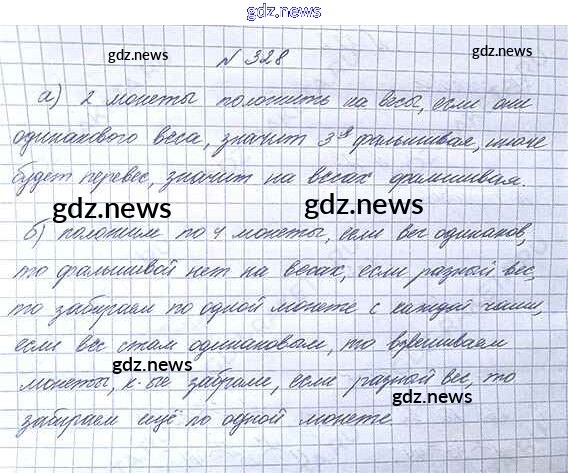 gdz.news
gdz.news
gdz.news
№ 328
а) 2 монеты положить на весы, если они
одинакового веса, значит 3я фальшивая, иначе
будет перевес, значит на весах фальшивая.
gdz.news
gdz.news
б) положим по 4 монеты, если вес одинаков,
то фальшивой нет на весах, если разной вес,
то забираем по одной монете с каждой чаши,
если вес стал одинаковым, то взвешиваем
gdz.news
монеты, к-ые забрали, если разной вес, то
gdz.news
забираем ещё по одной монете.